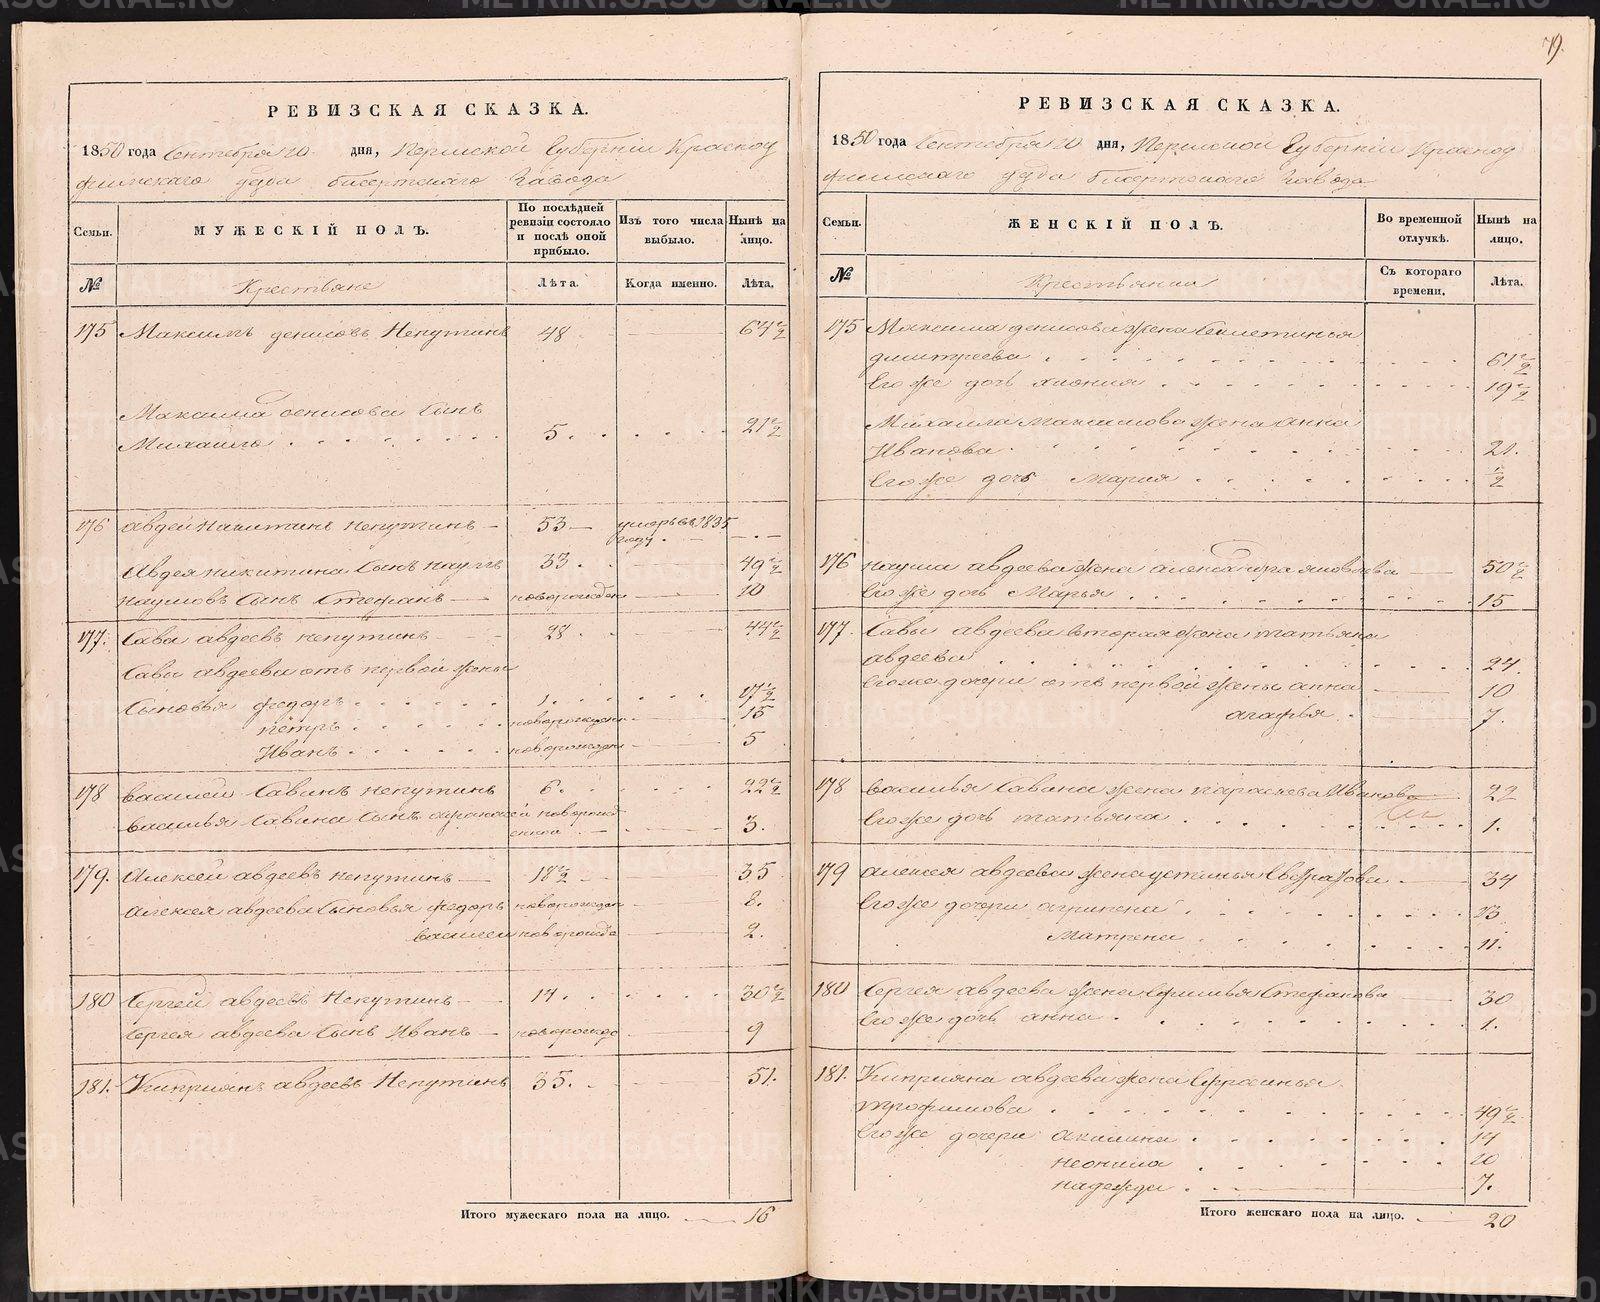 79.
РЕВИЗСКАЯ СКАЗКА.
1850 года Сентября 20 дня, Пермской Губерніи Красноу
фимскаго уезда бисертскаго Завода
Семьи. МУЖЕСКІЙ ПОЛЪ. По послѣдней ревизіи состояло и послѣ оной прибыло. Изъ того числа выбыло. Нынѣ на лицо.
№ Крестьяне Лѣта. Когда именно. Лѣта.
175 Максимъ денисовъ Непутинъ 48 64 1/2
Максима денисова Сынъ
Михайло 5. 21 1/2
176 авдей Никитинъ Непутинъ 53 умеръ въ 1835
году.
Авдея никитина Сынъ наумъ 33. 49 1/2
наумовъ Сынъ Стефанъ новорожден 10
177. Сава авдеевъ непутинъ 28. 44 1/2
Савы авдеева отъ первой жены
Сыновья федоръ 1. 17 1/2
петръ новорожден 15
Иванъ новорожден 5
178 василей Савинъ непутинъ 6. 22 1/2
василья Савина Сынъ новорожд
енной 3.
179. Алексей авдеевъ непутинъ 18 1/2 35
алексея авдеева Сыновья федоръ новорожден 8.
василей новорожде 2.
180 Сергей авдеевъ Непутинъ 14. 30 1/2
Сергея авдеева Сынъ Иванъ новорожде 9
181. Киприянъ авдеевъ Непутинъ 35. 51.
Итого мужескаго пола на лицо. 16
РЕВИЗСКАЯ СКАЗКА.
1850 года Сентября 20 дня, Пермской Губерніи Красноу
фимскаго уезда бисертскаго Завода
Семьи. ЖЕНСКІЙ ПОЛЪ. Во временной отлучкѣ. Нынѣ на лицо.
№ Крестьянки Съ котораго времени. Лѣта.
175 Максима денисова жена
дмитреева 61 1/2
Его же дочь хиония 19 1/2
Михайла максимова жена анна
Иванова 21.
Его же дочь Мария 1/2
176 наума авдеева жена александра яковлева 50 1/2
Его же дочь Марья 15
177. Савы авдеева вторая жена татьяна
авдеева 24.
Егоже дочери отъ первой жены анна 10
агафья 7.
178 василья Савина жена параскева Иванов 22
Его же дочь татьяна 1.
179 алексея авдеева жена устинья Евграфова 34
Его же дочери агрипена 13
Матрена 11.
180 Сергея авдеева жена Стефанова 30
Его же дочь анна 1.
181. Киприяна авдеева жена Ефросинья
трофимова 49 1/2
Его же дочери акилина 14
неонила 10
надежда 7.
Итого женскаго пола на лицо. 20
METRIKI.GASO-URAL.RU